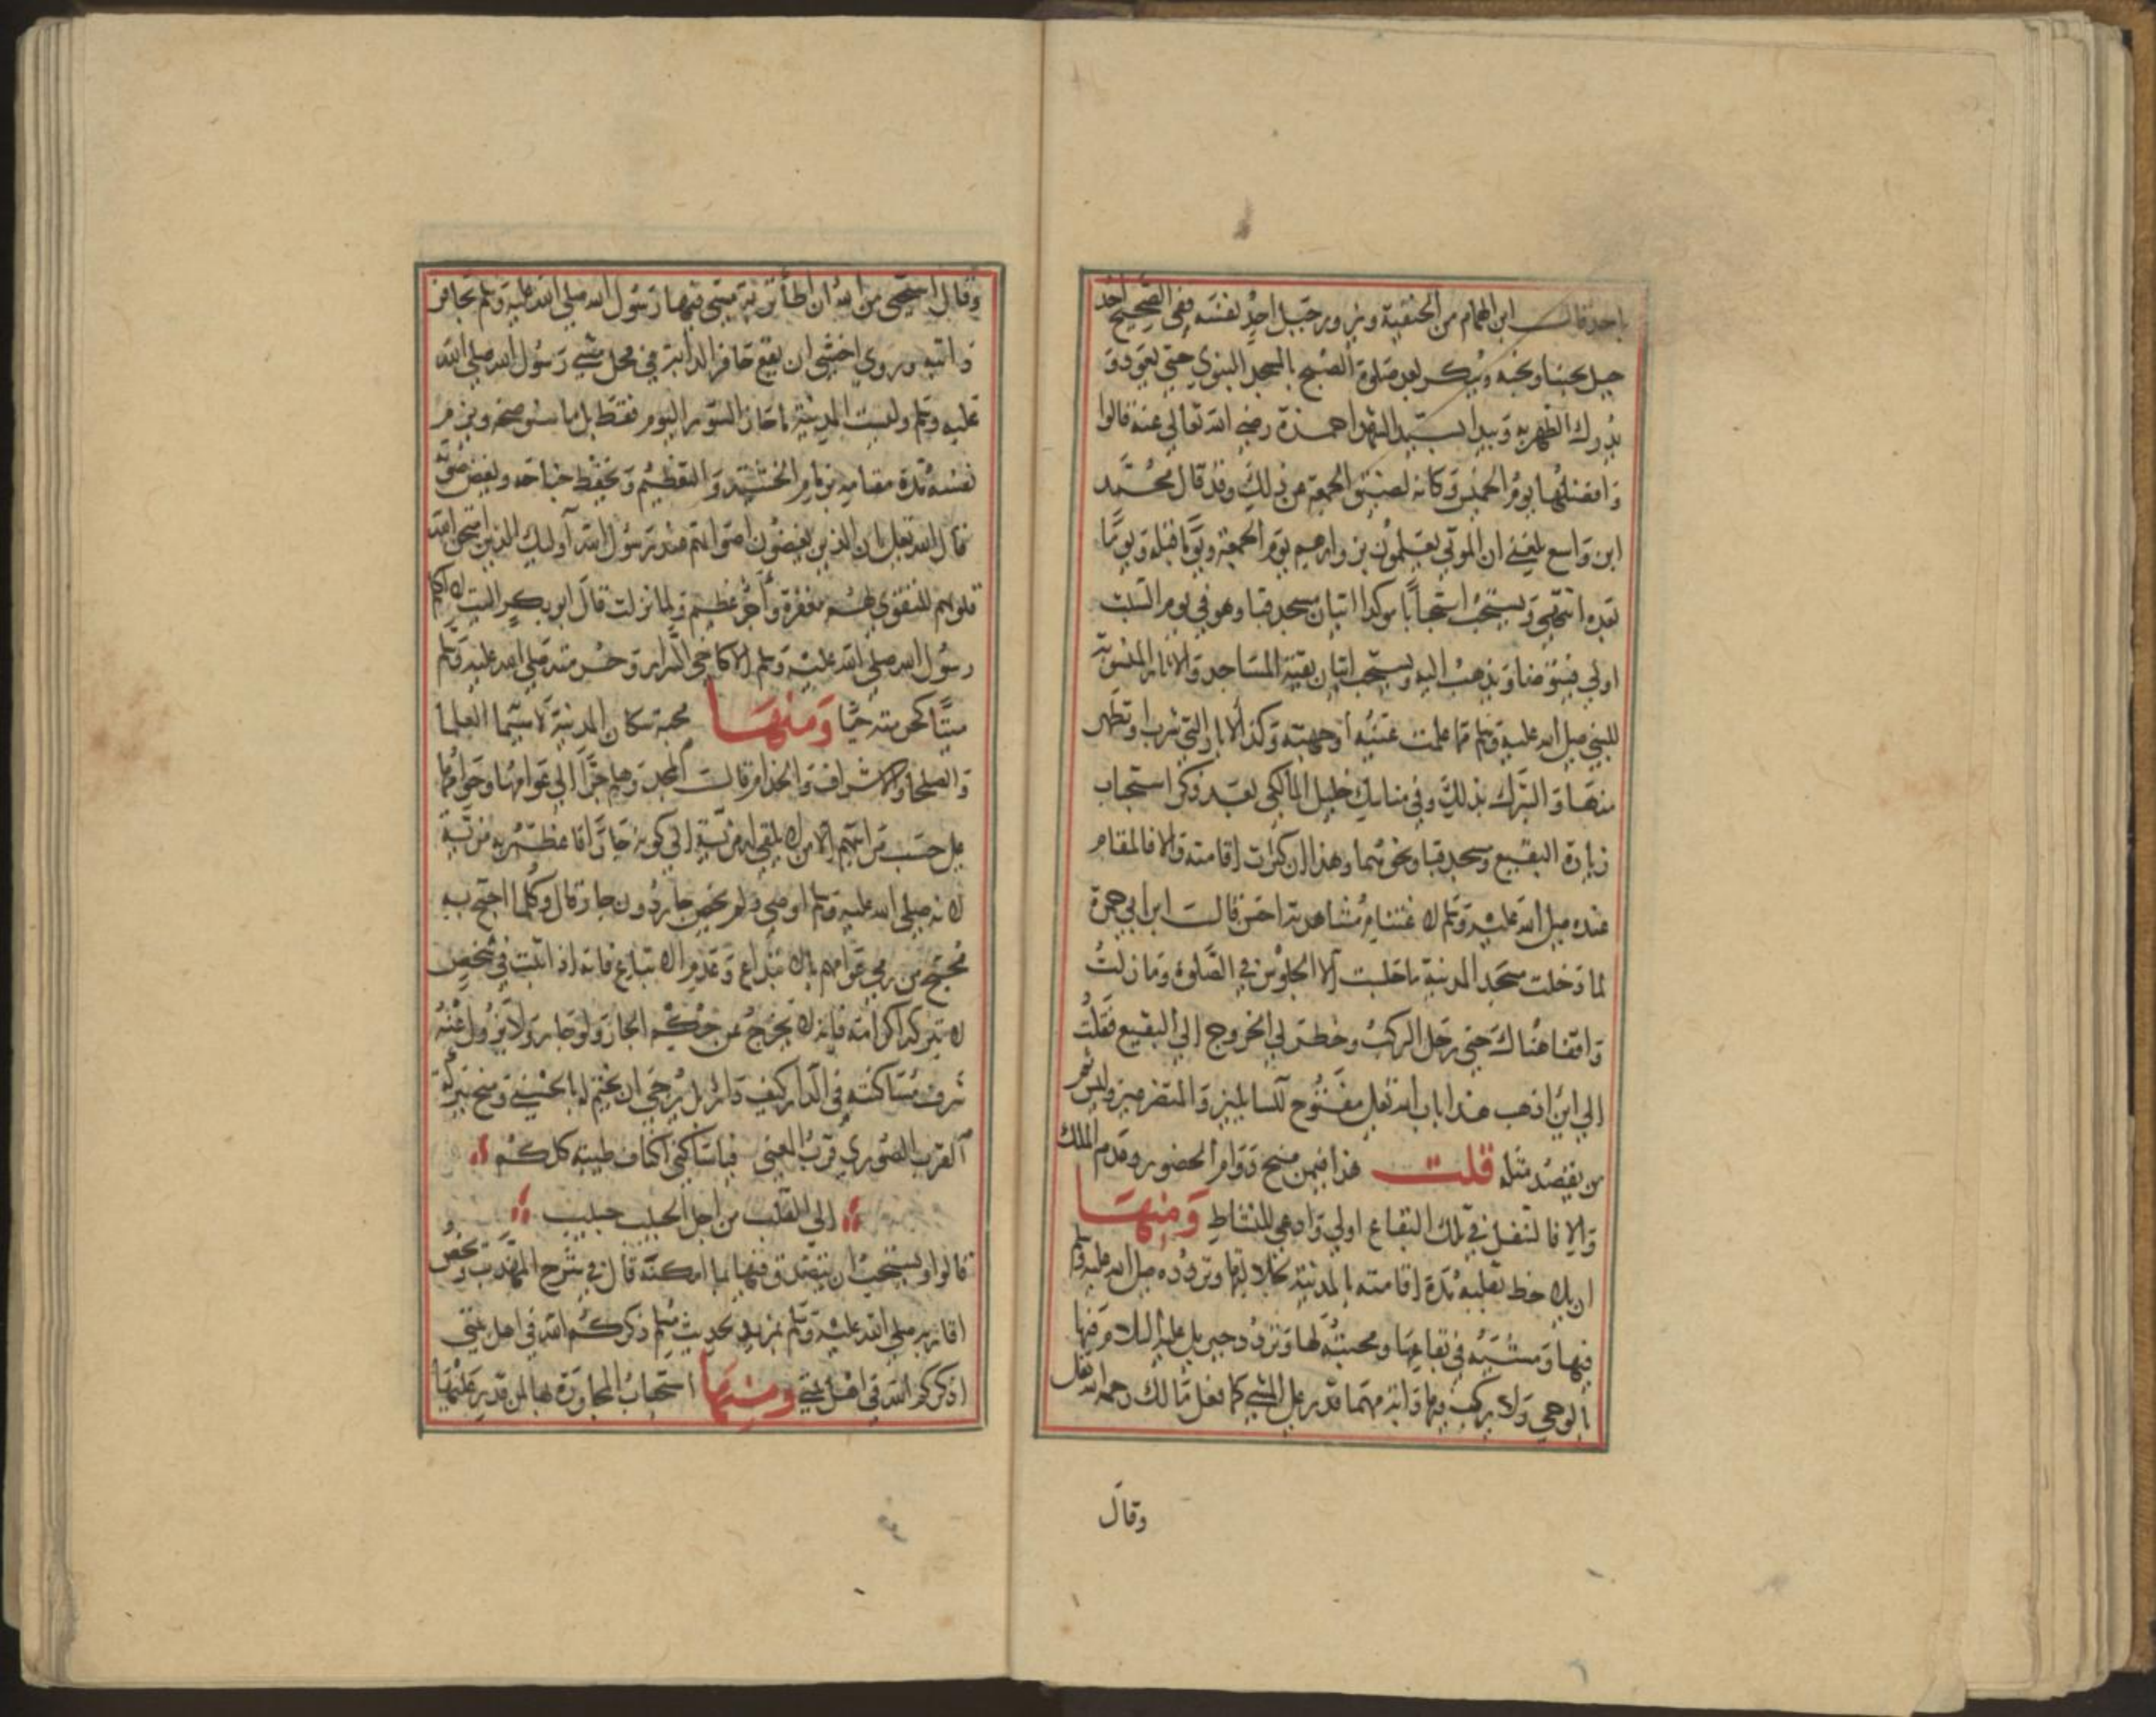 باحد قالـــــ ابن الهمام من الحنفية ويزور جبل احد نفسه ففي الصحيح احد
جبل يحبنا ونحبه ويبكر بعد صلوة الصبح بالمسجد النبوي حتي يعود و
يدرك الظهر به ويبدا بسيد الشهدا حمزة رضي الله تعالي عنه قالوا
وافضلها يوم الخميس وكانه لضيق الجمعة عن ذلك وقد قال محمد
ابن واسع بلغني ان الموتي يعلمون بزوارهم يوم الجمعة ويوما قبله ويوما
بعده انتهي ويستحب استحبابا موكدا اتيان مسجد قبا وهو في يوم السبت
اولي فيتوضا ويذهب اليه ويستحب اتيان بقية المساجد والاثار المنسوبة
للنبي صلي الله عليه وسلم مما علمت عينه او جهته وكذا الابار التي شرب او تطهر
منها والتبرك بذلك وفي مناسك خليل المالكي بعد ذكر استحباب
زيارة البقيع ومسجد قبا ونحوهما وهذا ان كثرت اقامته والا فالمقام
عنده صلي الله عليه وسلم لاغتنام مشاهدته احسن قالت ابن ابي جمرة
لما دخلت مسجد المدينة ما جلست الا الجلوس في الصلوة وما زلت
واقفا هناك حتي رحل الركب وخطر لي الخروج الي البقيع فقلت
الي اين اذهب هذا باب الله تعالي مفتوح للسائلين والمتضرعين وليس ثم
من يقصد مثله قلت هذا فيمن منح دوام الحضور وعدم الملل
والا فالتنقل في تلك البقاع اولي وادعي للنشاط ومنها
ان يلاحظ بقلبه مدة اقامته بالمدينة جلالتها وتردده صلي الله عليه وسلم
فيها ومشيه في بقاعها ومحبته لها وتردد جبريل عليه السلام فيها
بالوحي ولا يركب بها دابة مهما قدر علي المشي كما فعل مالك رحمه الله تعالي
وقال
وقال استحي من الله ان اطأ تربة مشي فيها رسول الله صلي الله عليه وسلم بحافر
دابته وروي اخشي ان يقع حافر الدابة في محل مشي رسول الله صلي الله
عليه وسلم وليست المدينة ما حاز السور اليوم فقط بل ويلزم
نفسه مدة مقامه بزمام الخشية والتعظيم ويخفظ جناحه ويغض صوته
قال الله تعالي ان الذين يغضون اصواتهم عند رسول الله اوليك الذين امتحن الله
قلوبهم للتقوي لهم مغفرة واجر عظيم ولما نزلت قال ابو بكر اليت لا اكلم
رسول الله صلي الله عليه وسلم الا كاخي السرار وحرمته صلي الله عليه وسلم
ميتا كحرمته حيا ومنها محبة سكان المدينة لاسيما العلما
والصلحا والاشراف والخدام قالت المجد وهلم جرا الي عوامها وخواصها
علي حسب مراتبهم الا من لا يبقي له مزية الي كونه جارا فاعظم به مزية
لانه صلي الله عليه وسلم اوصي ولم يخص جار دون جار قال وكلما احتج به
محتج من رمي عوامهم بالابتداع وعدم الاتباع فانه اذا اثبت في شخص
لا تترك اكرامه فانه لا يخرج عن حكم الجار ولو جار ولا يزول عنه
شرف مساكنته في الدار كيف دار بل يرجي ان يختم له بالحسني ويمنح ببركة
القرب الصوري قرب المعني فيا ساكني اكناف طيبة كلكم
الي القلب من اجل الحبيب حبيب
قالوا ويستحب ان يتصدق فيها بما امكنه قال في شرح المهذب ويخص
اقاربه صلي الله عليه وسلم بمزيد لحديث مسلم ذكركم الله في اهل بيتي
اذكركم الله في اهل بيتي ومنها استحباب المجاورة بها لمن قدر عليها